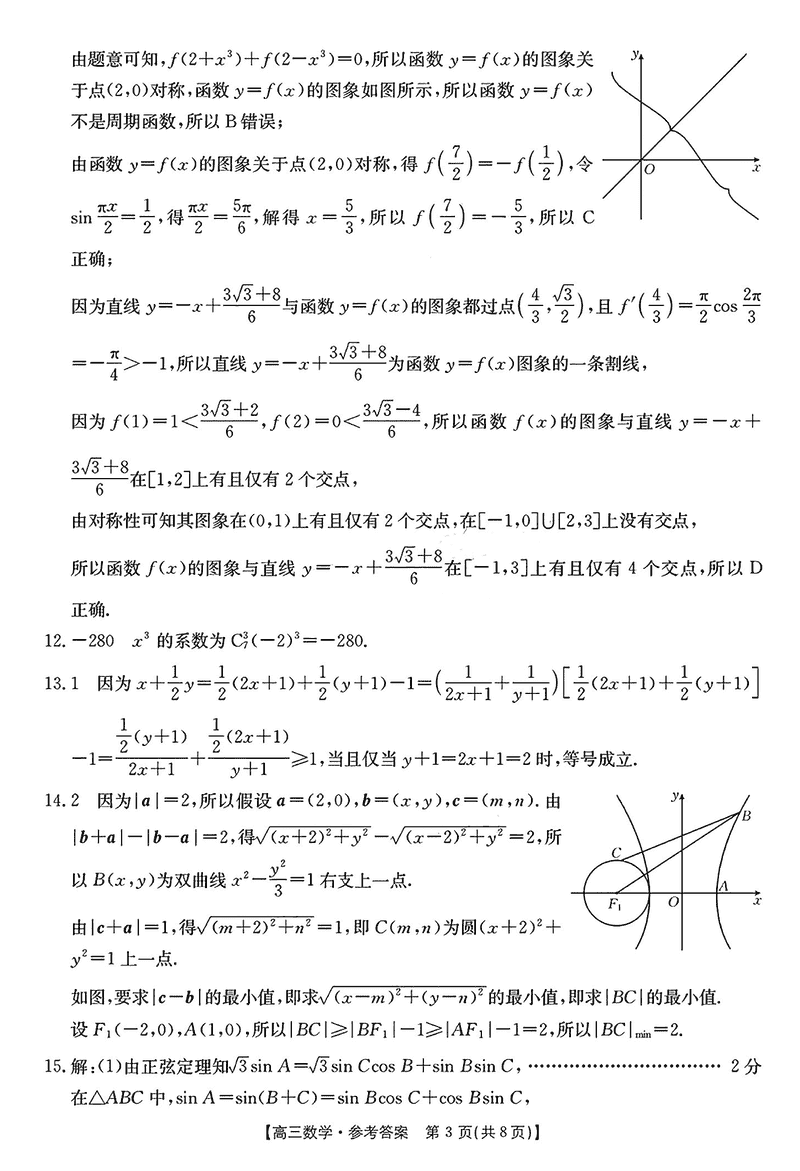 由题意可知,f(2+x³)+f(2-x³)=0,所以函数 y=f(x)的图象关
于点(2,0)对称,函数 y=f(x)的图象如图所示,所以函数 y=f(x)
不是周期函数,所以 B 错误;
由函数 y=f(x)的图象关于点(2,0)对称,得 f(7/2)=-f(1/2),令
sin πx/2=1/2,得πx/2=5π/6,解得 x=5/3,所以 f(7/2)=-5/3,所以 C
正确;
因为直线 y=-x+(3√3+8)/6与函数 y=f(x)的图象都过点(4/3,√3/2),且 f′(4/3)=π/2 cos 2π/3
=-π/4>-1,所以直线 y=-x+(3√3+8)/6为函数 y=f(x)图象的一条割线,
因为 f(1)=1<(3√3+2)/6,f(2)=0<(3√3-4)/6,所以函数 f(x)的图象与直线 y=-x+
(3√3+8)/6在[1,2]上有且仅有 2 个交点,
由对称性可知其图象在(0,1)上有且仅有 2 个交点,在[-1,0]∪[2,3]上没有交点,
所以函数 f(x)的图象与直线 y=-x+(3√3+8)/6在[-1,3]上有且仅有 4 个交点,所以 D
正确.
y
O
x
12.-280 x³ 的系数为 C₇³(-2)³=-280.
13.1 因为 x+1/2y=1/2(2x+1)+1/2(y+1)-1=(1/(2x+1)+1/(y+1))[1/2(2x+1)+1/2(y+1)]
-1=(1/2(y+1))/(2x+1)+(1/2(2x+1))/(y+1)≥1,当且仅当 y+1=2x+1=2 时,等号成立.
14.2 因为|a|=2,所以假设 a=(2,0),b=(x,y),c=(m,n).由
|b+a|-|b-a|=2,得√((x+2)²+y²)-√((x-2)²+y²)=2,所
以 B(x,y)为双曲线 x²-y²/3=1 右支上一点.
由|c+a|=1,得√((m+2)²+n²)=1,即 C(m,n)为圆(x+2)²+
y²=1 上一点.
y
B
C
A
F₁
O
x
如图,要求|c-b|的最小值,即求√((x-m)²+(y-n)²)的最小值,即求|BC|的最小值.
设 F₁(-2,0),A(1,0),所以|BC|≥|BF₁|-1≥|AF₁|-1=2,所以|BC|min=2.
15.解:(1)由正弦定理知√3sin A=√3sin Ccos B+sin Bsin C, ……………………………… 2 分
在△ABC 中,sin A=sin(B+C)=sin Bcos C+cos Bsin C,
【高三数学·参考答案 第 3 页(共 8 页)】